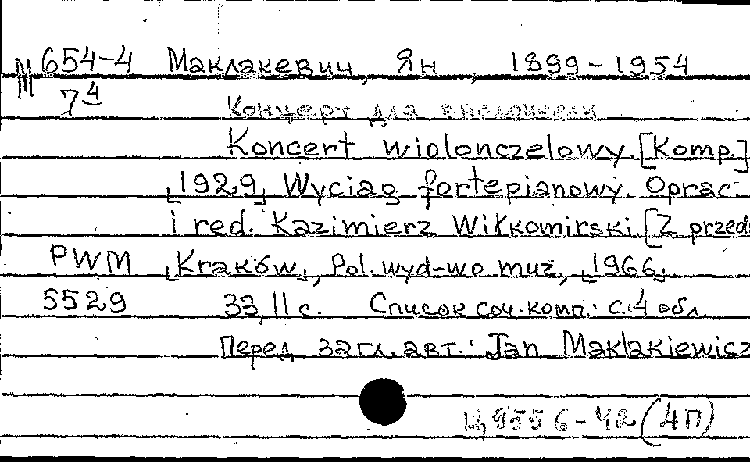 М 654-4 Маклакевич, Ян, 1899-1954
7 4
Концерт для виолончели
Koncert wiolonczelowy. [Komp.]
[1929] Wyciąg fortepianowy. Oprac.
i red. Kazimierz Wiłkomirski [Z przed
PWM [Kraków], Pol. wyd-wo muz, [1966].
5529 33, 11 с. Список соч. комп.: с. 4 обл
Перед загл. авт.: Jan Maklakiewicz
Ц 9556-42 (4П)